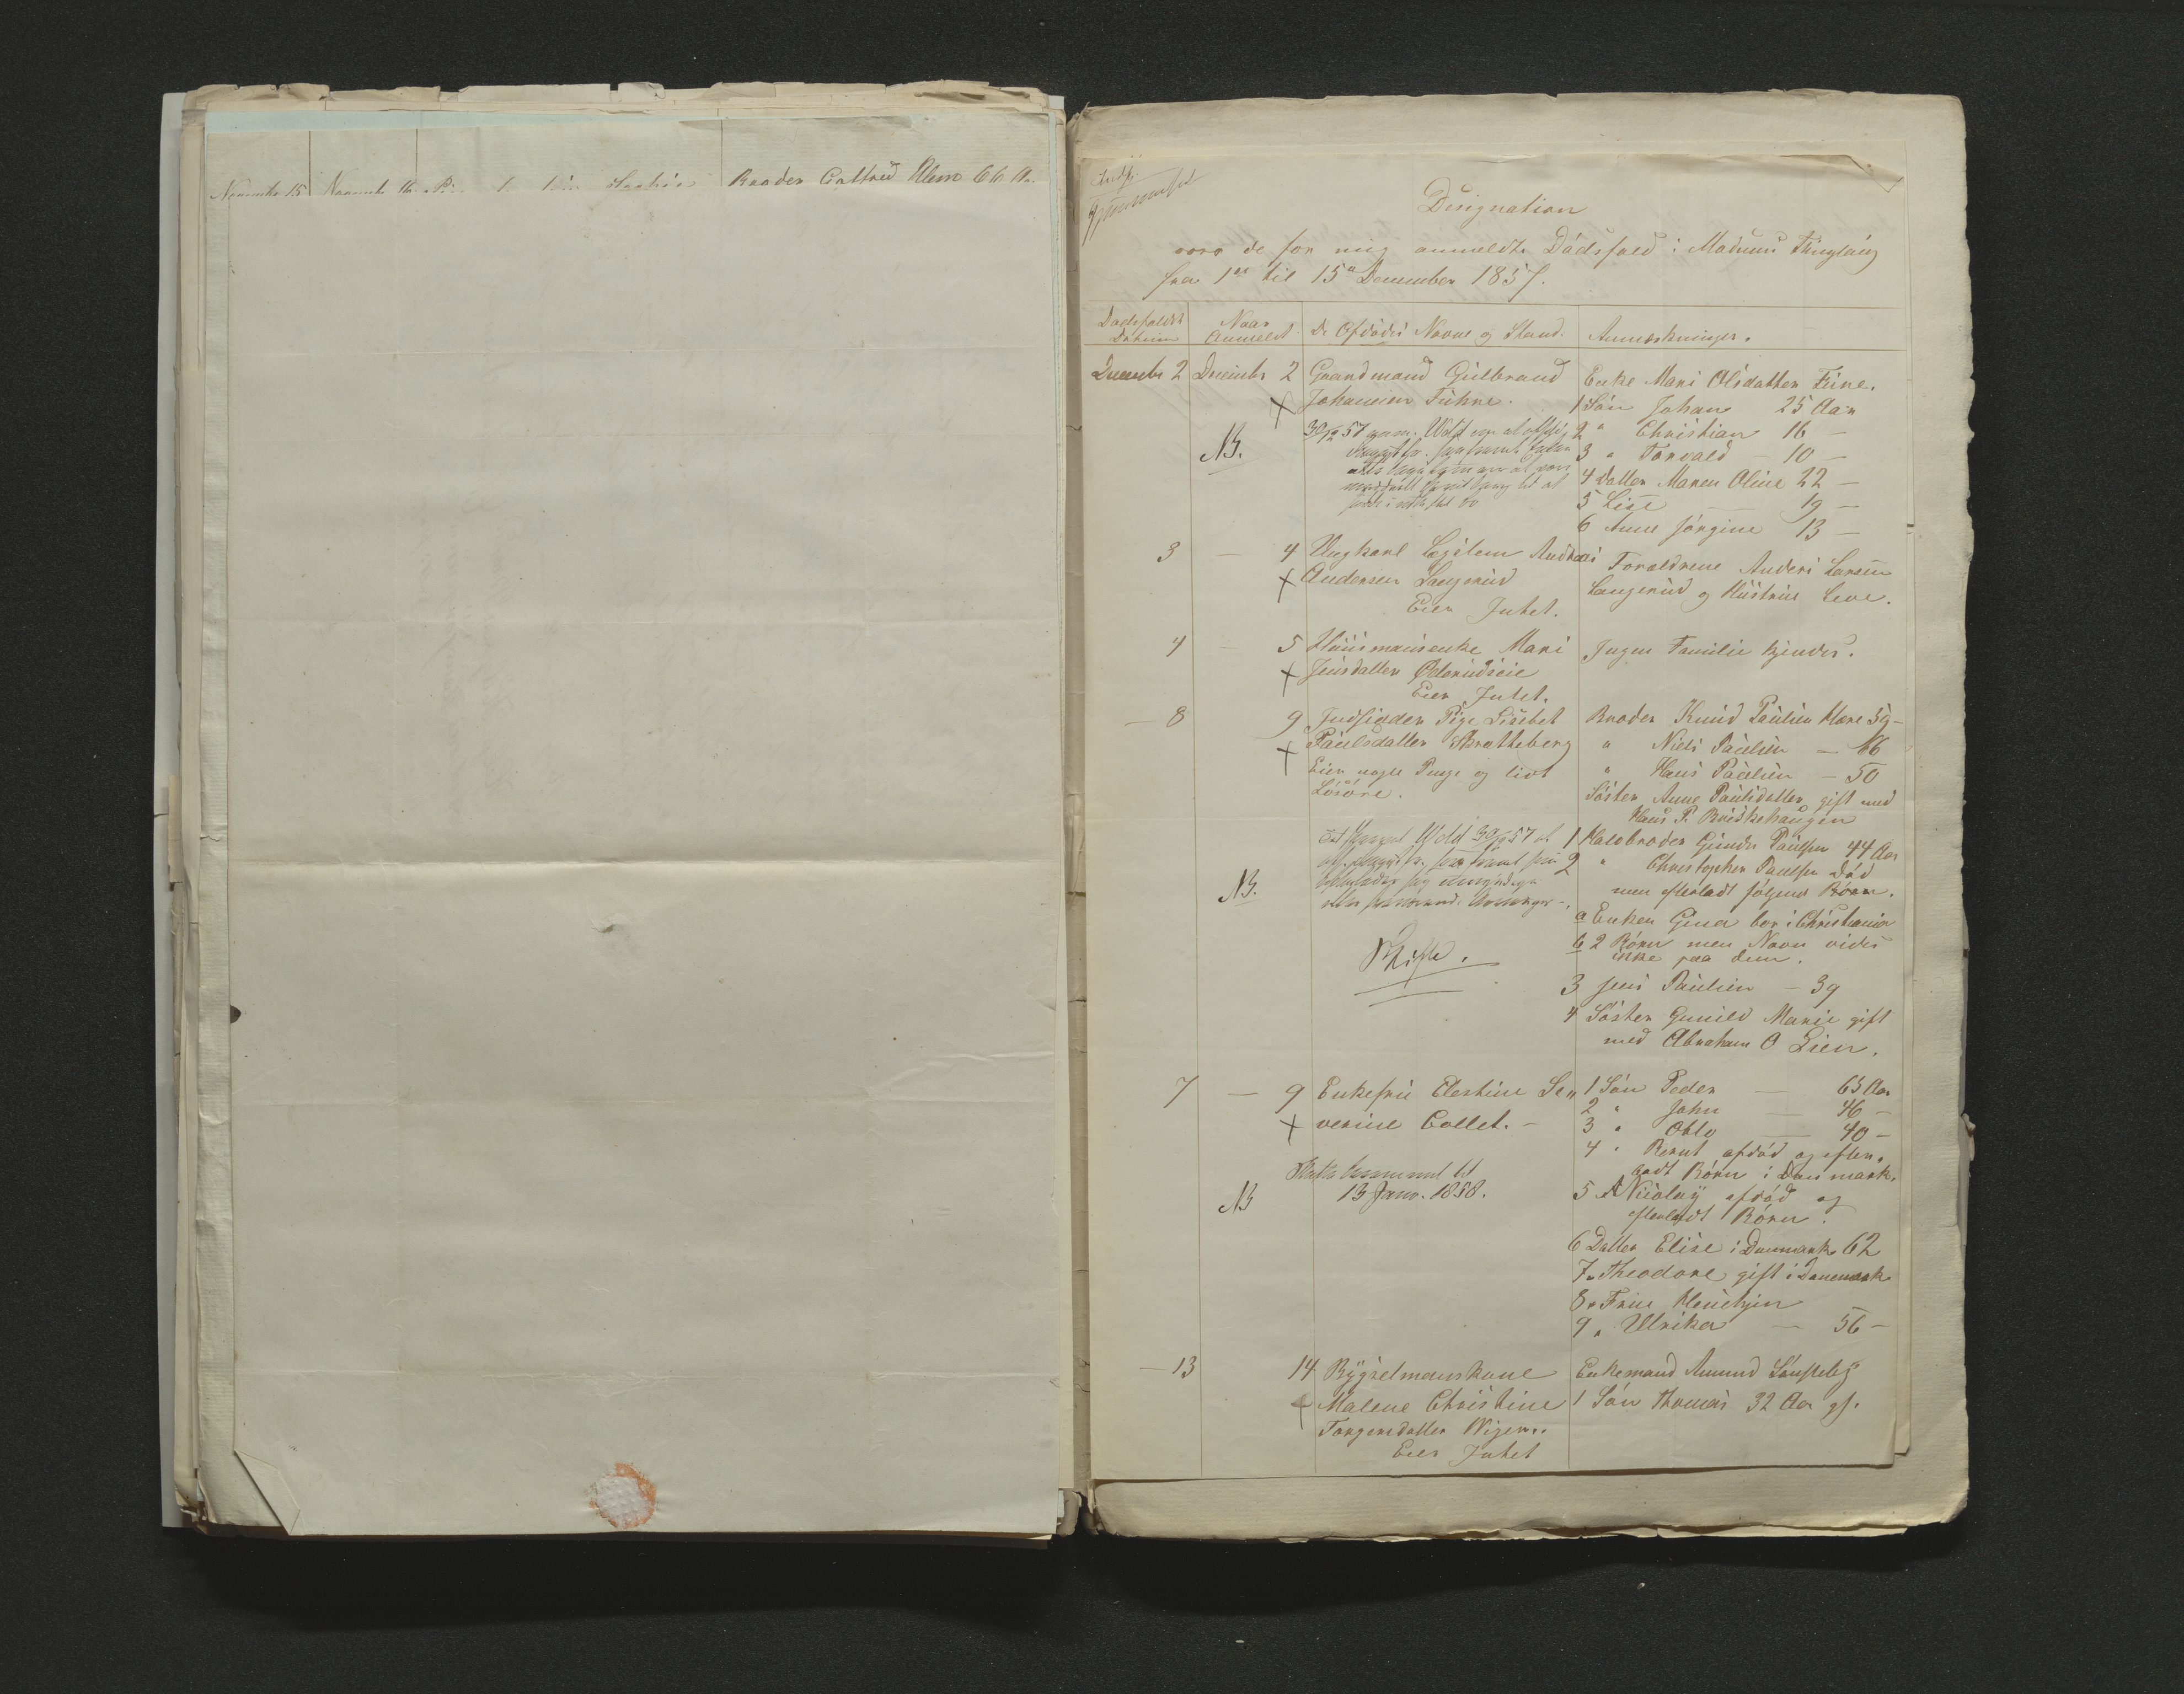 November 15 Novembr 16 Broder Gottfred 66 Aar
Designation
over de for mig anmeldte Dödsfald i Modums Thinglaug
fra 1ste til 15de December 1857.
Dödsfaldets Datum
Naar Anmeldt
De Afdödes Navne og Stand.
Anmærkninger.
December 2 Decembr 2 Gaardmand Gulbrand
Johannesen
NB.
30/12 57
Enke Mari Olsdatter
1 Sön Johan 25 Aar
2 " Christian 16 —
3 " Torvald — 10 —
4 Datter Maren Oline 22 —
5 Lise — 19 —
6 Anne Jörgine 13 —
3 — 4 Ungkarl Andreas
Andersen Langerud
Eier Intet.
Forældrene Anders Larsen
Langerud og Hustrue Leve.
4 — 5 Huusmandsenke Mari
Jensdatter
Eier Intet.
Ingen Familie kjendes.
— 8 9 Indsidder Pige Lisebet
Paulsdatter Bratteberg
Eier nogle Penge og lidt
Lösöre.
NB.
Wold 30/12 57
Skifte.
Broder Knud Paulsen 59 —
" Niels Paulsen — 66
" Hans Paulsen — 50
Söster Anne Paulsdatter gift med
Hans P. Bruskehaugen
1 Halvbroder Gunder Paulsen 44 Aar
2 " Christopher Paulsen död
men efterladt fölgende Börn.
a Enken Gina bor i Christiania
b 2 Börn men Navn vides
ikke paa dem.
3 Jens Paulsen — 39
4 Söster Gunild Marie gift
med Abraham O Lien.
7 — 9 Enkefrue Elestine Se„
verine Collet. —
NB
13 Janr. 1858.
1 Sön Peder — 65 Aar
2 " John — 46 —
3 " Otto — 40 —
4 " Bernt afdöd og efter„
ladt Börn i Danmark.
5 " Nicolay afdöd og
efterladt Börn.
6 Datter Elise i Danmark 62
7 " Theodore gift i Danmark
8 " Frue
9 " Ulrika — 56 —
— 13 14 Bygselmandskone
Malene Christine
Torgersdatter
Eier Intet
Enkemand Amund
1 Sön Thomas 32 Aar gf.